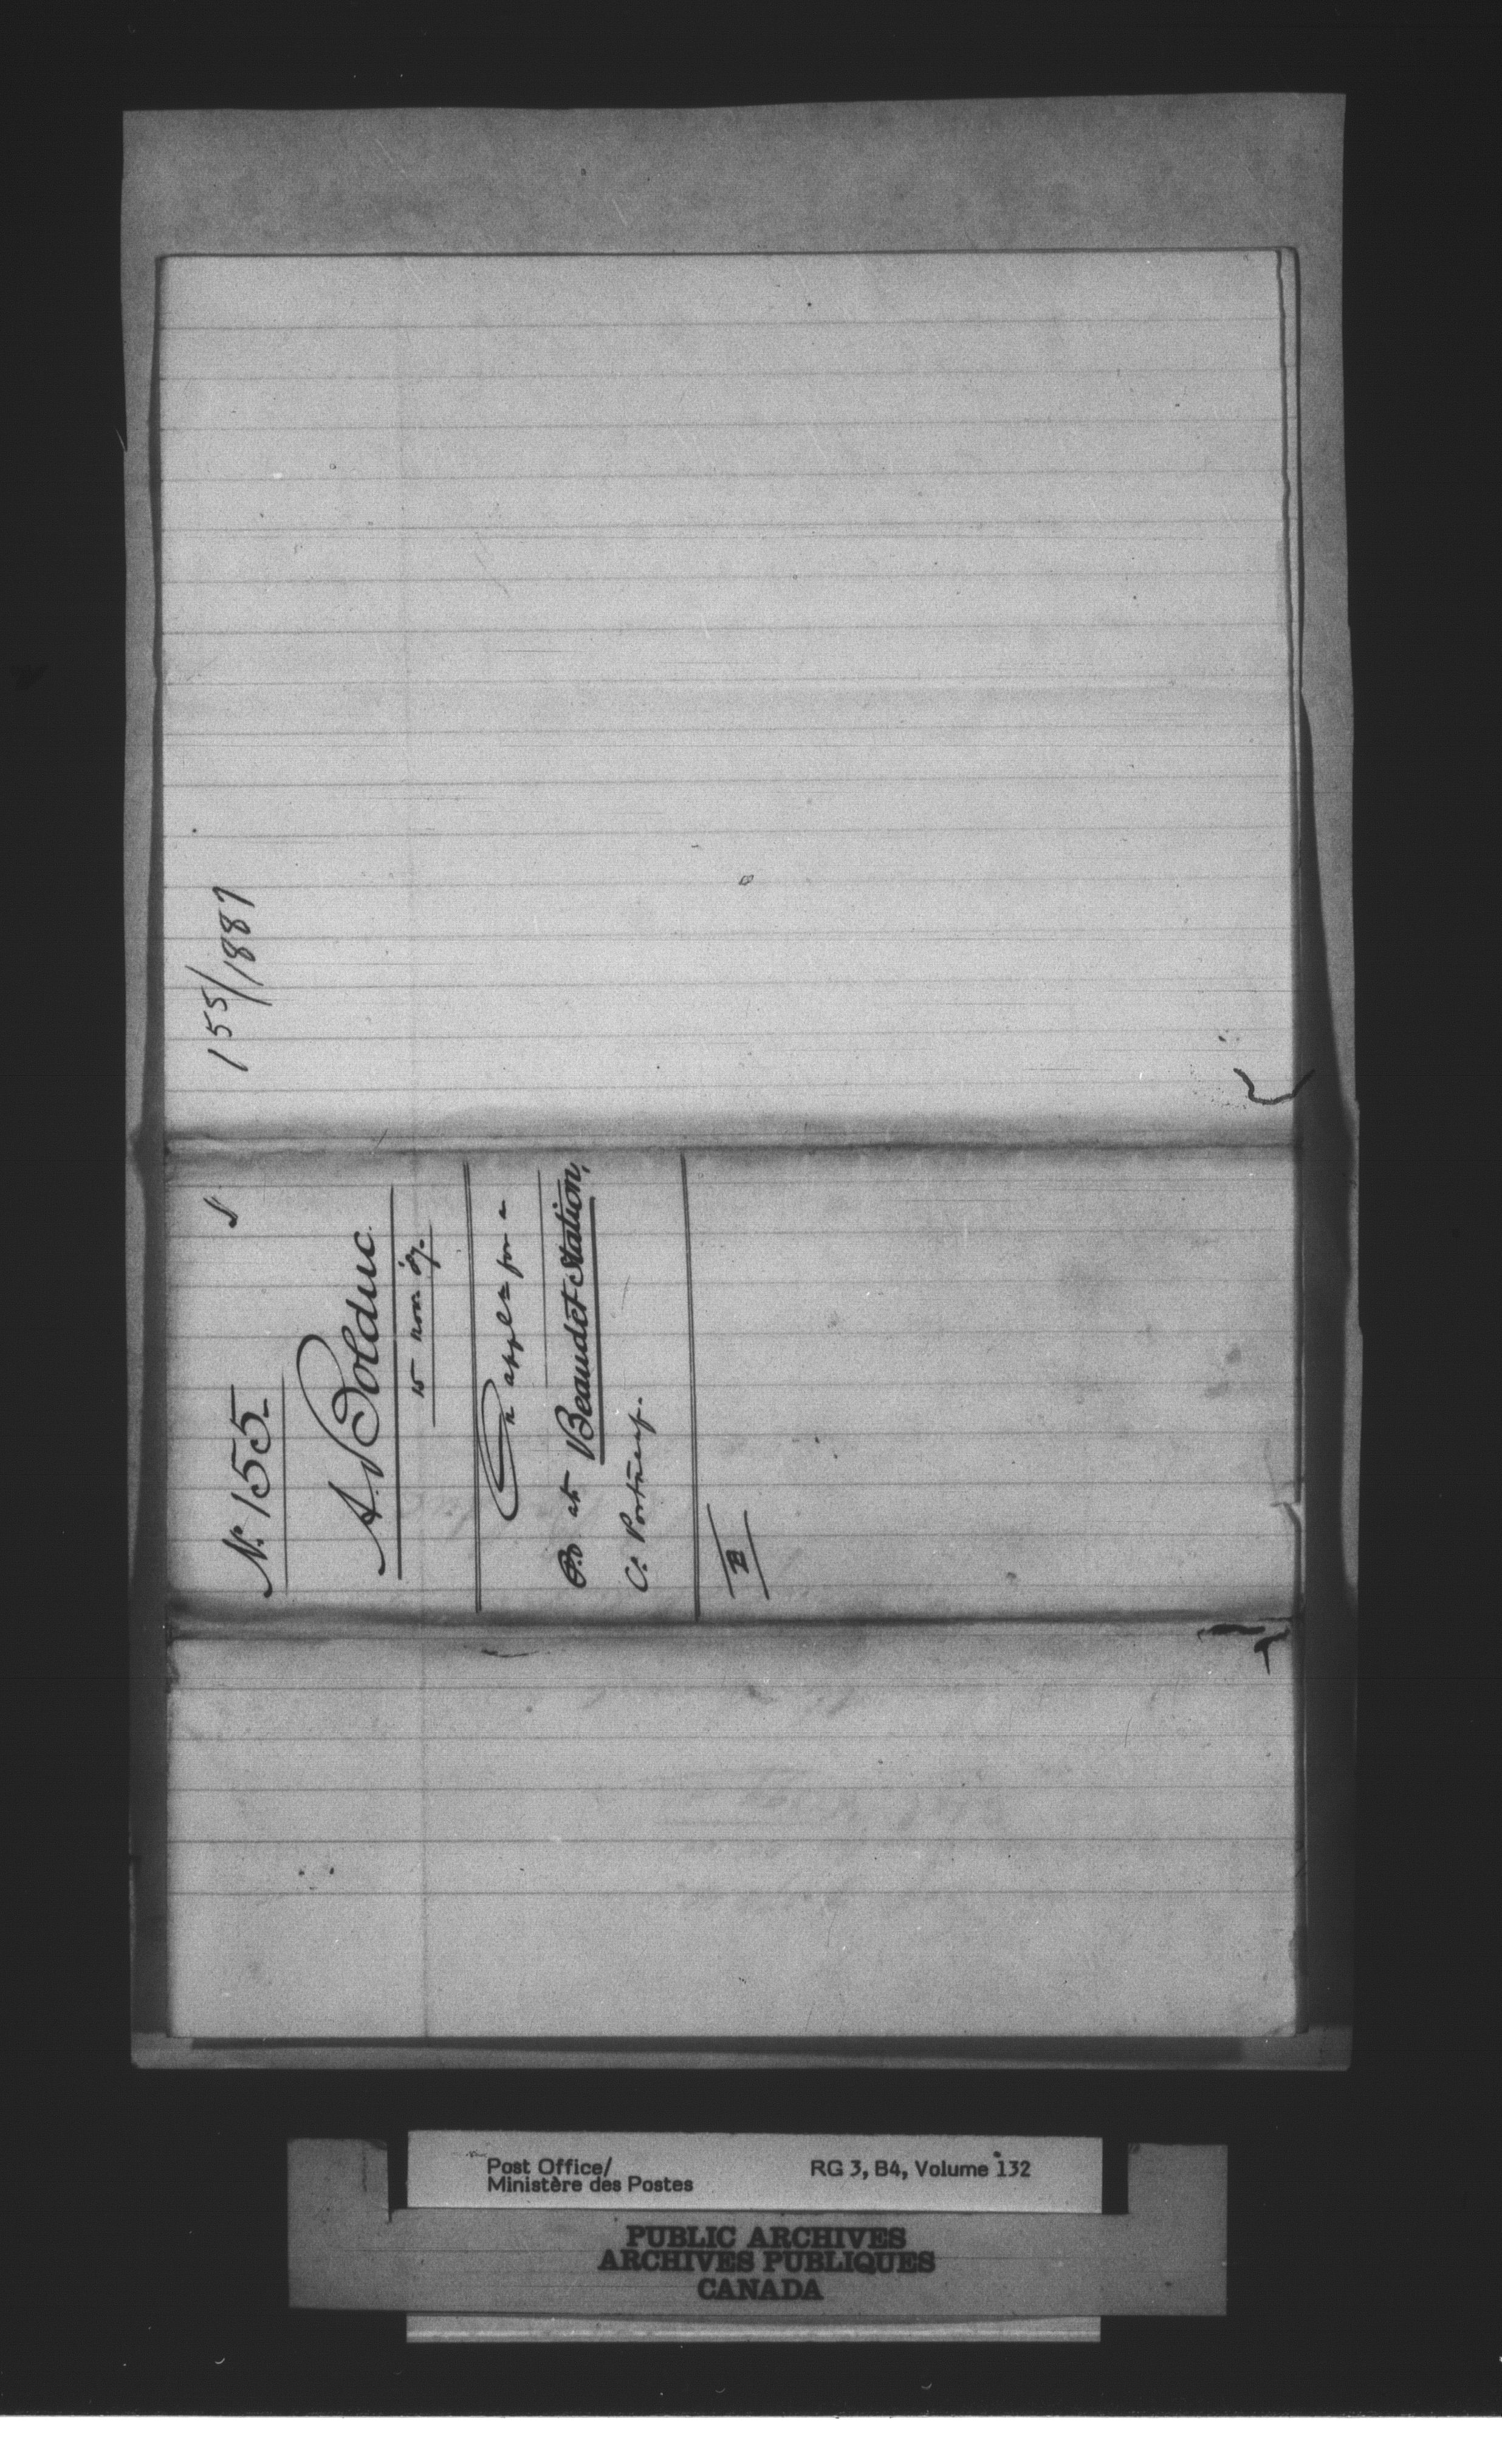 155/1887
No. 155
A. Bolduc
15 Nov. 87.
On appln for a
P.O. at Beaudet Station,
Co. Portneuf.
Post Office/
Ministère des Postes
RG 3, B4, Volume 132
PUBLIC ARCHIVES
ARCHIVES PUBLIQUES
CANADA